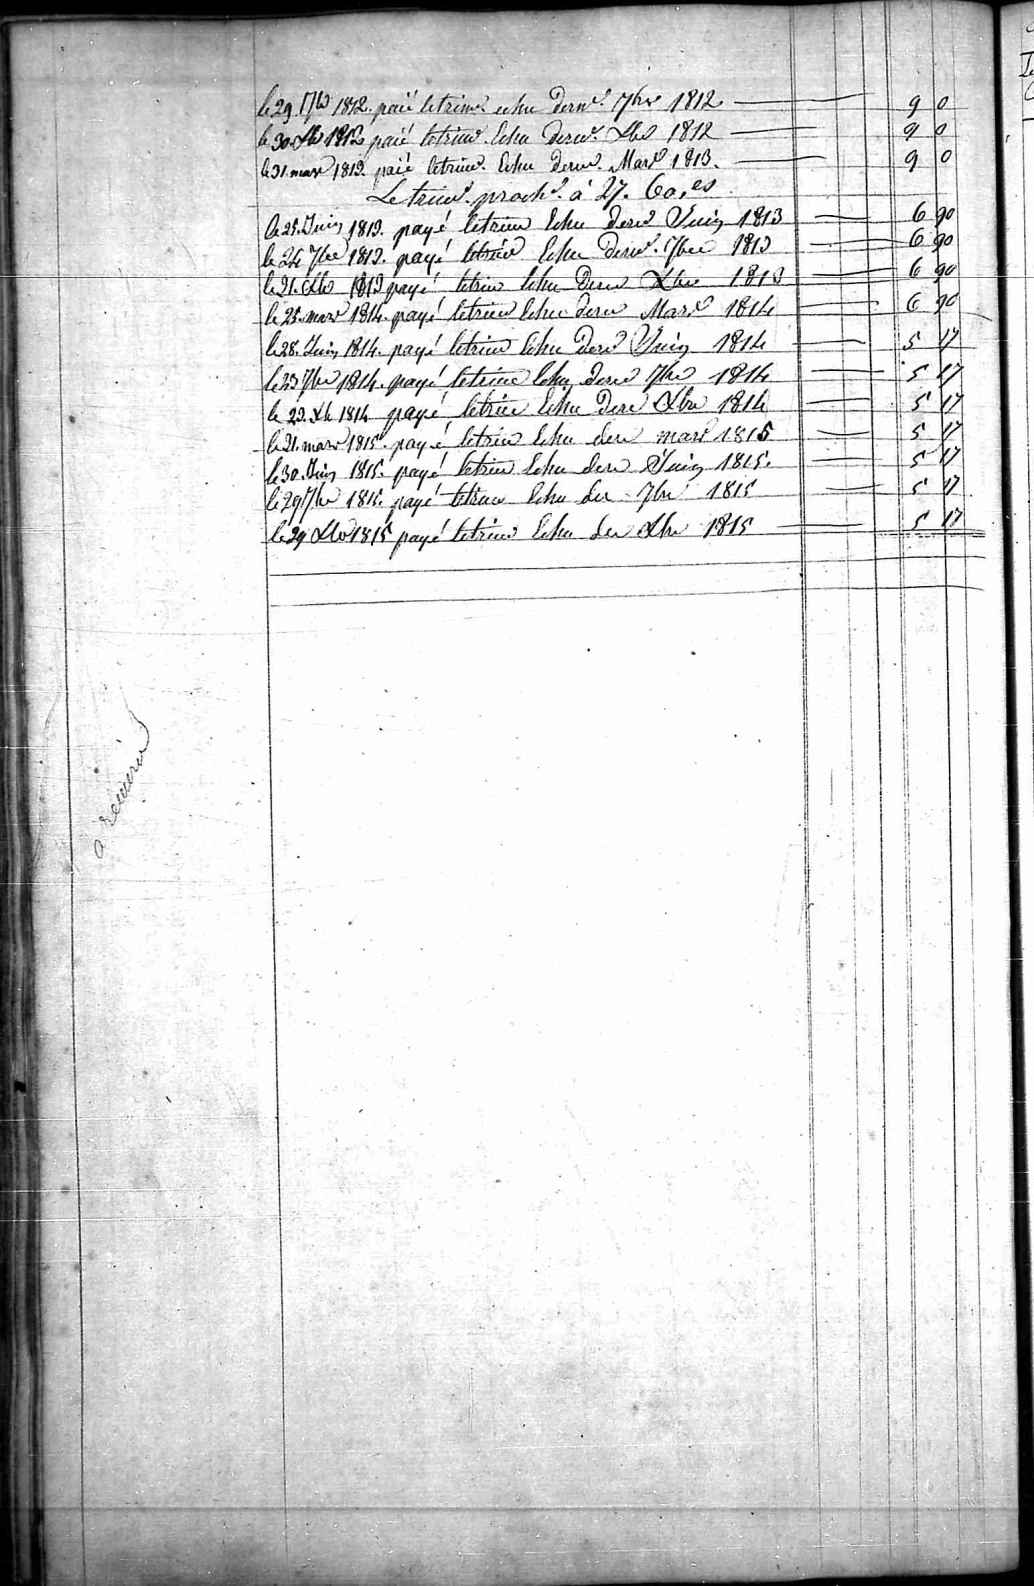 le 29 7bre 1812. paié letrimre echu dernr 7bre 1812 9 0
le 30 Xbre 1812 paié letrimr Echu dernr. Xbre 1812 9 0
le 31 mars 1813. paié letrimr. Echu dernr. Mars 1813. 9 0
Le trimr. prochn. à 27. 60,es
le 25. Juin 1813. payé letrim Echu dernr Juin 1813 6 90
le 24 7bre 1813. payé letrim Echu dernr. 7bre 1813 6 90
le 21. Xbre 1813 payé letrim Echu dern Xbre 1813 6 90
le 25. mars 1814. payé letrim Echu dern Mars 1814 6 90
le 28. Juin 1814. payé letrim Echu dern Juin 1814 5 17
le 23 7bre 1814. payé letrim Echu dern 7bre 1814 5 17
le 23. Xb 1814 payé letrim Echu dern Xbre 1814 5 17
le 21. mars 1815. payé letrim Echu der mars 1815 5 17
le 30. Juin 1815. payé letrim Echu der Juin 1815. 5 17
le 29 7bre 1815. payé letrim Echu der 7bre 1815 5 17
le 29 Xbre 1815 payé letrim Echu der Xbre 1815 5 17